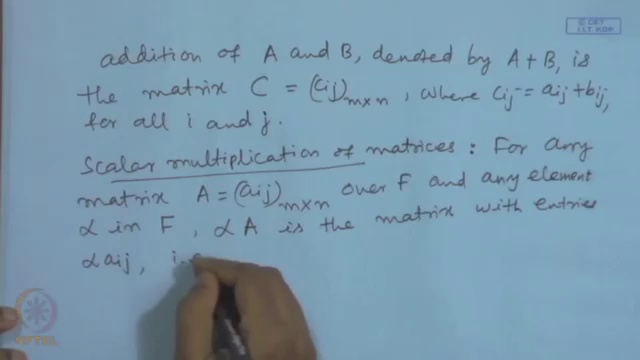 © CET
I.I.T. KGP
addition of A and B, denoted by A+B, is
the matrix C = (cij)m×n, where cij = aij + bij,
for all i and j.
Scalar multiplication of matrices: For any
matrix A = (aij)m×n over F and any element
α in F, αA is the matrix with entries
αaij, i.e
NPTEL